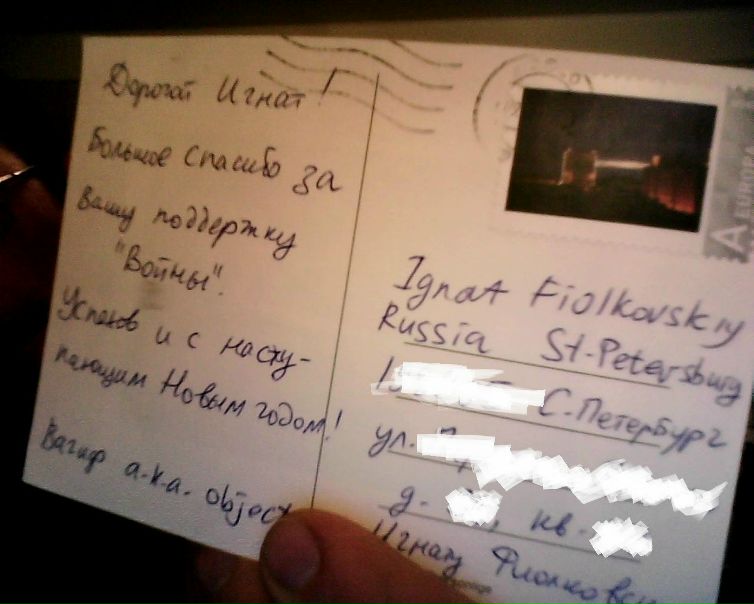 Дорогой Игнат!
Большое спасибо за
Вашу поддержку
"Войны".
Успехов и с насту-
пающим Новым годом!
Вагиф a.k.a. object
A EUROPA
Ignat Fiolkovskiy
Russia St-Petersburg
С.Петербург
ул.
д. , кв.
Игнату